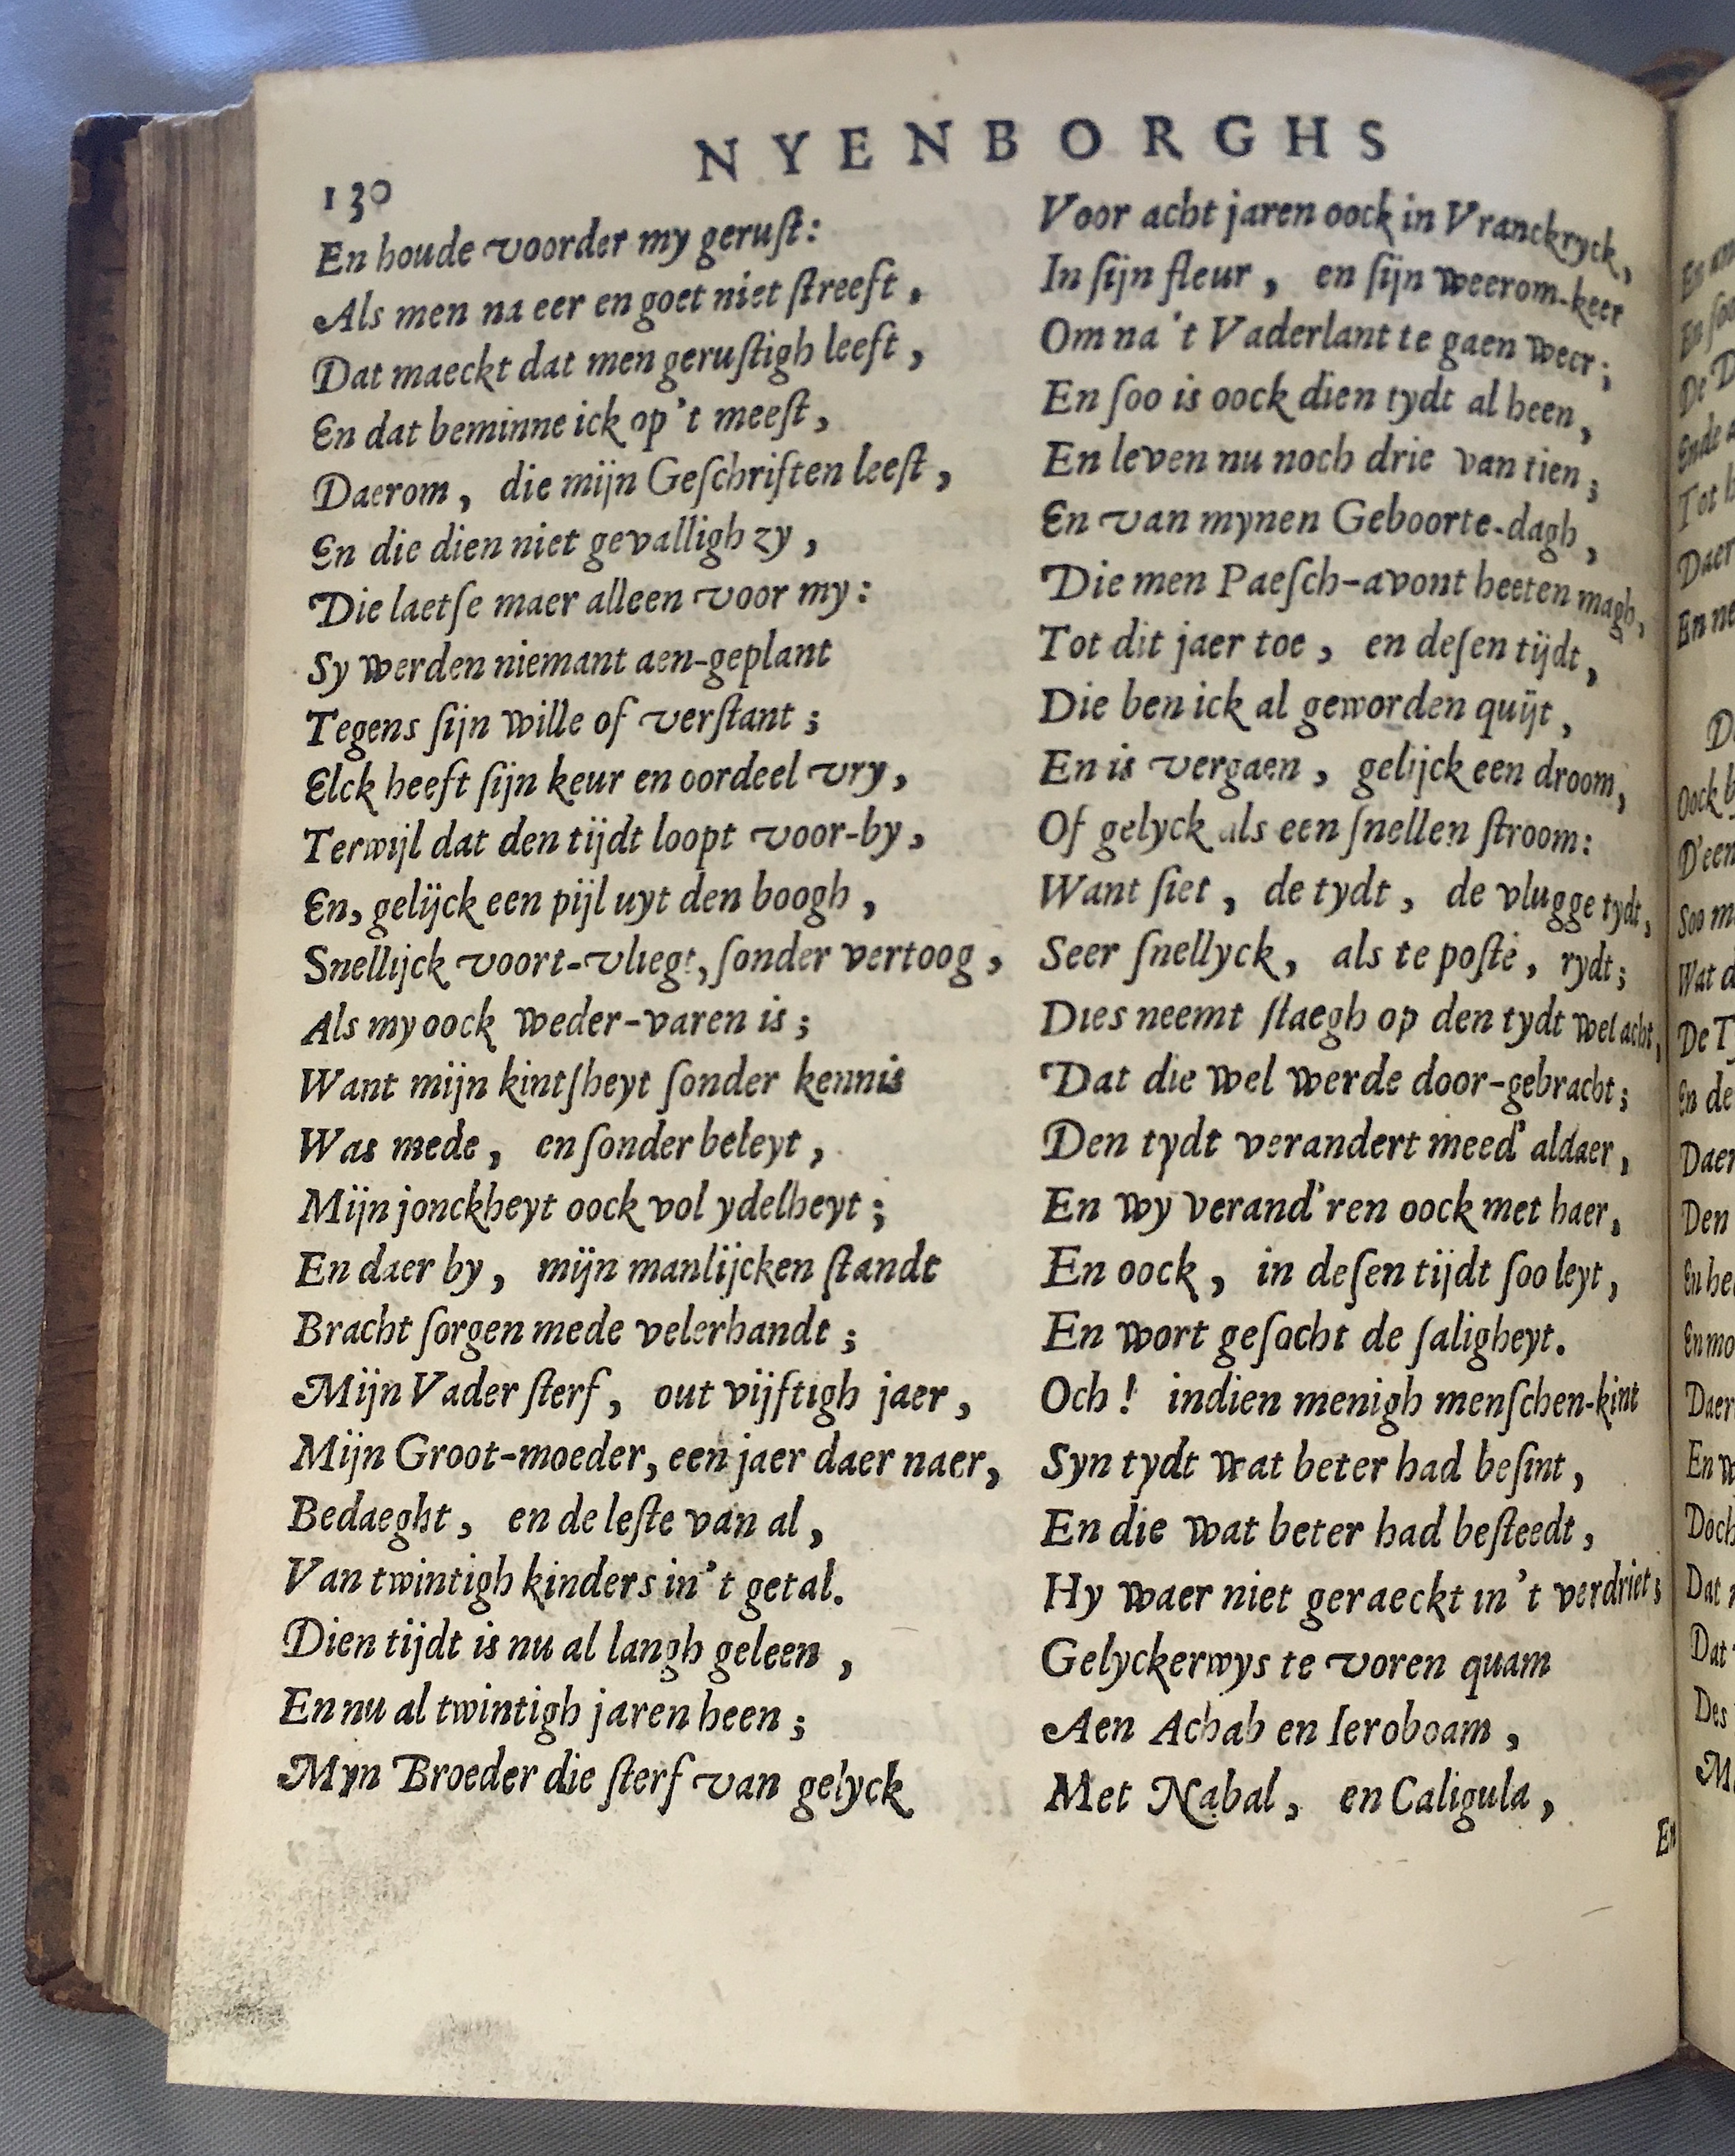 NYENBORGHS
130
En houde voorder my geruſt:
Als men na eer en goet niet ſtreeft,
Dat maeckt dat men geruſtigh leeft,
En dat beminne ick op 't meeſt,
Daerom, die mijn Geſchriften leeſt,
En die dien niet gevalligh zy,
Die laetſe maer alleen voor my:
Sy werden niemant aen-geplant
Tegens ſijn wille of verſtant;
Elck heeft ſijn keur en oordeel vry,
Terwijl dat den tijdt loopt voor-by,
En, gelijck een pijl uyt den boogh,
Snellijck voort-vliegt, ſonder vertoog,
Als my oock weder-varen is;
Want mijn kintſheyt ſonder kennis
Was mede, en ſonder beleyt,
Mijn jonckheyt oock vol ydelheyt;
En daer by, mijn manlijcken ſtandt
Bracht ſorgen mede velerhandt;
Mijn Vader ſterf, out vijftigh jaer,
Mijn Groot-moeder, een jaer daer naer,
Bedaeght, en de leſte van al,
Van twintigh kinders in 't getal.
Dien tijdt is nu al langh geleen,
En nu al twintigh jaren heen;
Myn Broeder die ſterf van gelyck
Voor acht jaren oock in Vranckryck,
In ſijn fleur, en ſijn weerom-keer
Om na 't Vaderlant te gaen weer;
En ſoo is oock dien tydt al heen,
En leven nu noch drie van tien;
En van mynen Geboorte-dagh,
Die men Paeſch-avont heeten magh,
Tot dit jaer toe, en deſen tijdt,
Die ben ick al geworden quijt,
En is vergaen, gelijck een droom,
Of gelyck als een ſnellen ſtroom:
Want ſiet, de tydt, de vlugge tydt,
Seer ſnellyck, als te poſte, rydt;
Dies neemt ſtaegh op den tydt wel acht,
Dat die wel werde door-gebracht;
Den tydt verandert meed' aldaer,
En wy verand'ren oock met haer,
En oock, in deſen tijdt ſoo leyt,
En wort geſocht de ſaligheyt.
Och! indien menigh menſchen-kint
Syn tydt wat beter had beſint,
En die wat beter had beſteedt,
Hy waer niet geraeckt in 't verdriet;
Gelyckerwys te voren quam
Aen Achab en Ieroboam,
Met Nabal, en Caligula,
En